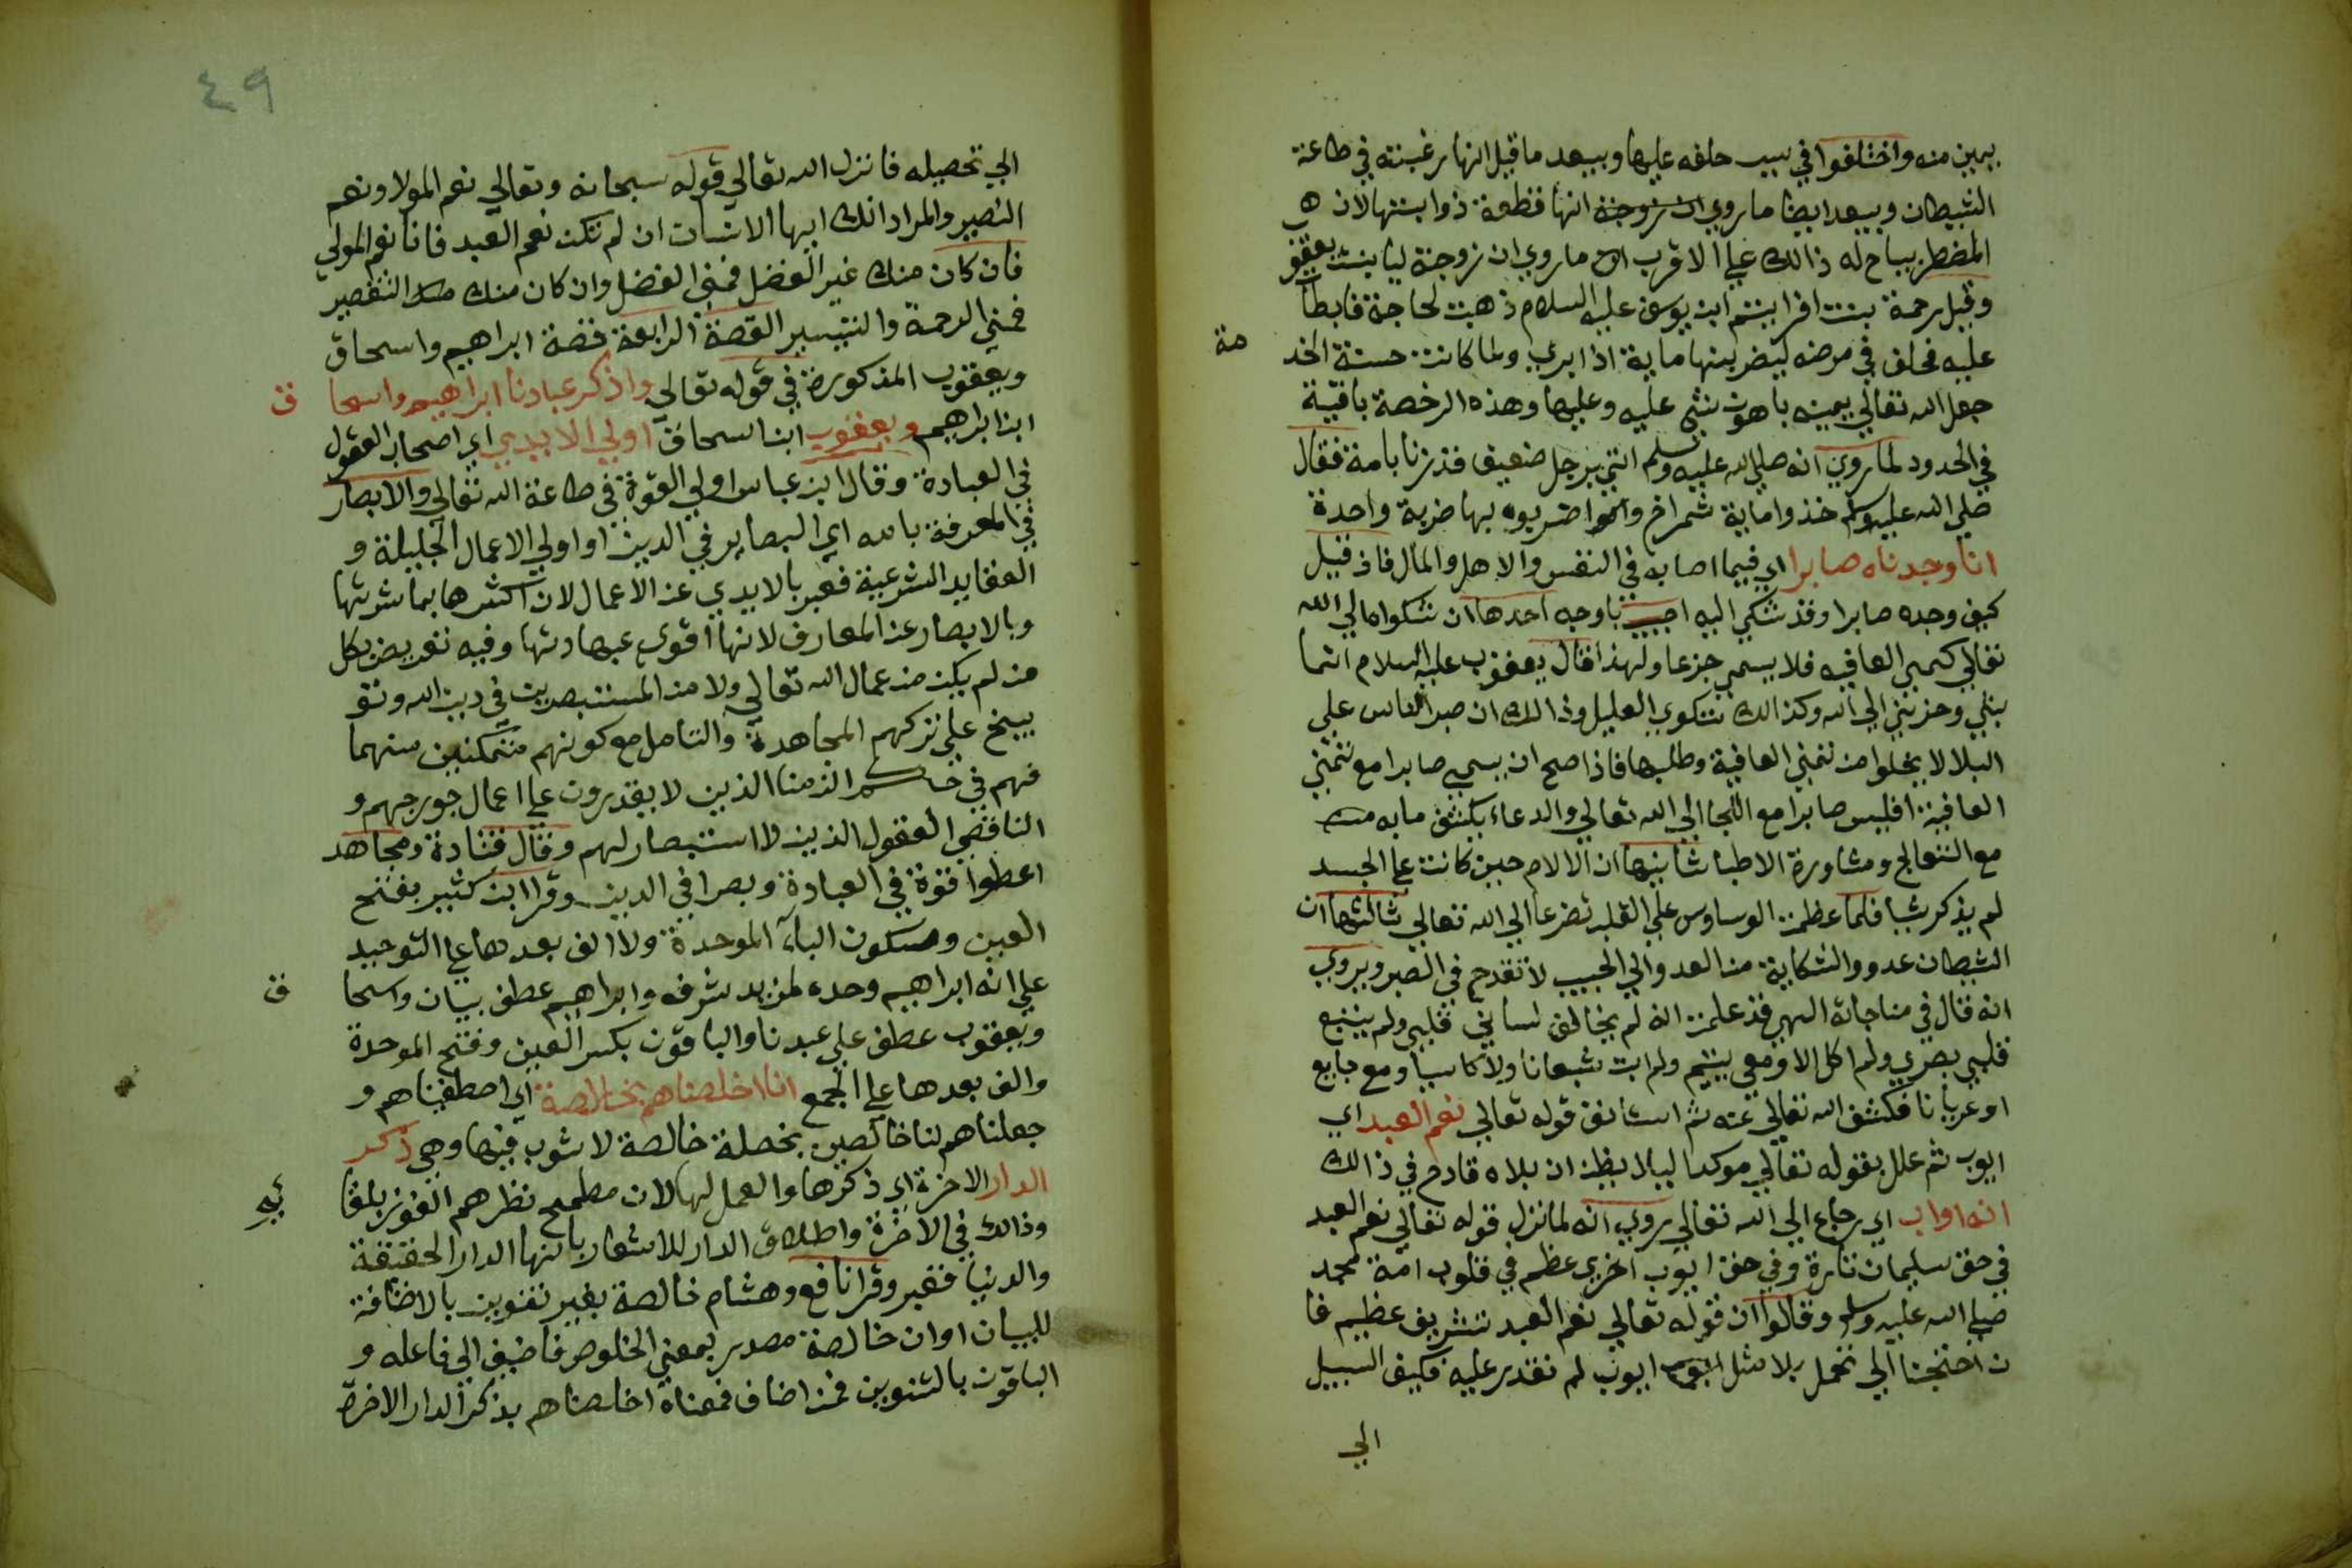 بيمين منه واختلفوا في سبب حلفه عليها ويبعد ما قيل انها رغبته في طاعة
الشيطان ويبعد ايضا ما روي ان زوجته انها قطعة ذوابتها لان
المضطر يباح له ذالك علي الاقرب ما روي ان زوجته ليا بنت يعقو
وقيل رحمة بنت افراثيم ابن يوسف عليه السلام ذهبت لحاجة فابطأ
عليه فحلف في مرضه ليضربنها ماية اذا ابري ولما كانت حسنة الخد مة
جعل الله تعالي يمينه باهون شئ عليه وعليها وهذه الرخصة باقية
في الحدود لما روي انه صلي الله عليه وسلم اتي برجل ضعيف قد زنا بامة فقال
صلي الله عليه وسلم خذوا ماية شمراخ واضربوه بها ضربة واحدة
انا وجدناه صابرا اي فيما اصابه في النفس والاهل والمال فاذ قيل
كيف وجده صابرا وقد شكي اليه اجيب باوجه احدها ان شكواه الي الله
تعالي كتمني العافيه فلا يسمي جزعا ولهذا قال يعقوب عليه السلام انما
بثي وحزني الي الله وكذالك شكوي العليل وذالك ان صبر الناس علي
البلا لا يخلوا من تمني العافية وطلبها فاذا صح ان يسمي صابرا مع تمني
العافية افليس صابرا مع اللجا الي الله تعالي والدعاء بكشف ما به
مع التعالج ومشاورة الاطبا ثانيها ان الالام حين كانت علي الجسد
لم يذكر شيا فلما عظمت الوساوس علي القلب تضرع الي الله تعالي ثالثها ان
الشيطان عدو والشكاية من العدو الي الحبيب لا تقدح في الصبر ويروي
انه قال في مناجاته الهي قد علمت انه لم يخالف لساني قلبي ولم يتبع
قلبي بصري ولم اكل الا ومعي يتيم ولم ابت شبعانا ولا كاسيا ومع جايع
او عريانا فكشف الله تعالي عنه ثم استانف قوله تعالي نعم العبد اي
ايوب ثم علل بقوله تعالي موكدا ليلا يظن ان بلاه قادح في ذالك
انه اواب اي رجاع الي الله تعالي روي انه لما نزل قوله تعالي نعم العبد
في حق سليمان تارة وفي حق ايوب اخري عظم في قلوب امة محمد
صلي الله عليه وسلم وقالوا ان قوله تعالي نعم العبد تشريف عظيم فا
ن احتجنا الي تحمل بلا مثل ايوب لم نقدر عليه فكيف السبيل
الي
٤٩
الي تحصيله فانزل الله تعالي قوله سبحانه وتعالي نعم المولا ونعم
النصير والمراد انك ايها الانسان ان لم تكن نعم العبد فانا نعم المولي
فان كان منك غير الفضل فمني الفضل وان كان منك التقصير
فمني الرحمة والتيسير القصة الرابعة قصة ابراهيم واسحاق
ويعقوب المذكورة في قوله تعالي واذكر عبادنا ابراهيم واسحا ق
ابن ابراهيم ويعقوب ابن اسحاق اولي الايدي اي اصحاب العقول
في العبادة وقال ابن عباس اولي القوة في طاعة الله تعالي والابصار
في المعرفة بالله اي البصاير في الدين او اولي الاعمال الجليلة و
العقايد الشرعية فعبر بالايدي عن الاعمال لان اكثرها بمباشرتها
وبالابصار عن المعارف لانها اقوي وفيه تعريض بكل
من لم يكن من عمال الله تعالي ولا من المستبصرين في دين الله وتو
بيخ علي تركهم المجاهدة والتامل مع كونهم متمكنين منهما
فهم في حكم الزمنا الذين لا يقدرون علي اعمال جورحهم و
الناقصي العقول الذين لا استبصار لهم وقال قتادة ومجاهد
اعطوا قوة في العبادة وبصرا في الدين وقرا ابن كثير بفتح
العين وسكون الباء الموحدة ولا الف بعدها علي التوحيد
علي انه ابراهيم وحده لمزيد شرفه وابراهيم عطف بيان واسحا ق
ويعقوب عطف علي عبدنا والباقون بكسر العين وفتح الموحدة
والف بعدها علي الجمع انا اخلصناهم بخالصة اي اصطفيناهم و
جعلناهم لنا خالصين بخصلة خالصة لا شوب فيها وهي ذكر
الدار الاخرة اي ذكرها والعمل لها لان مطمح نظرهم الفوز بلقا ئيه
وذالك في الاخرة واطلاق الدار للاشعار بانها الدار الحقيقة
والدنيا فقير وقرا نافع وهشام خالصة بغير تنوين بالاضافة
للبيان او ان خالصة مصدر بمعني الخلوص فاضيف الي فاعله و
الباقون بالتنوين فمن اضاف فمعناه اخلصناهم بذكر الدار الاخرة